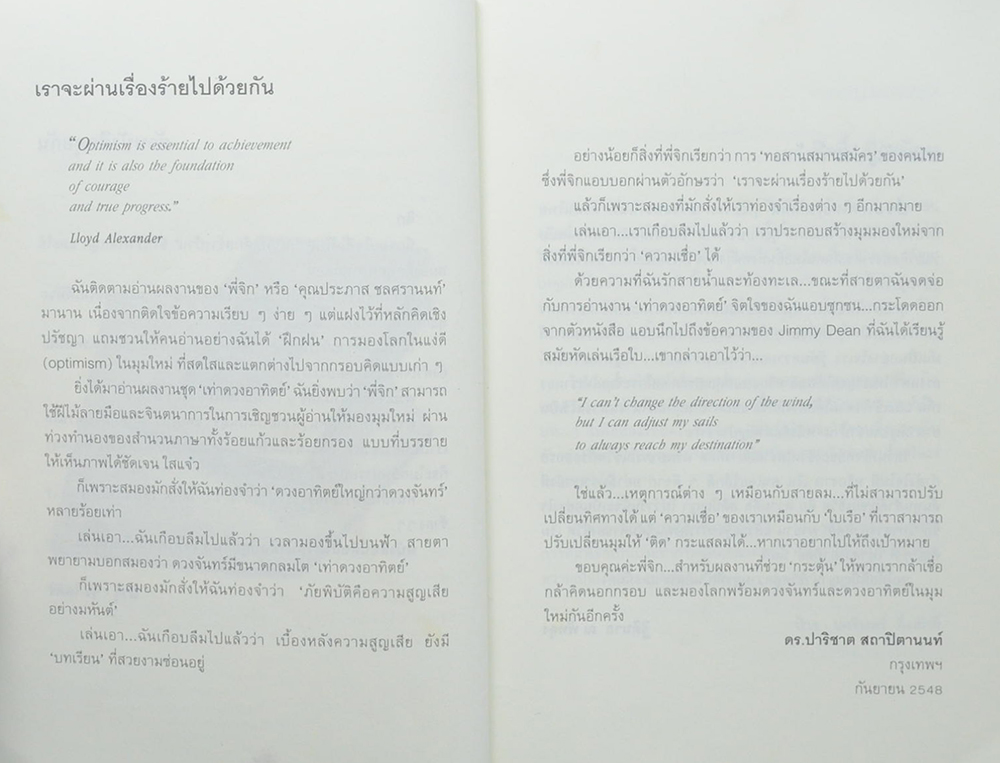 เราจะผ่านเรื่องร้ายไปด้วยกัน
“Optimism is essential to achievement
and it is also the foundation
of courage
and true progress.”
Lloyd Alexander
ฉันติดตามอ่านผลงานของ ‘พี่จิก’ หรือ ‘คุณประภาส ชลศรานนท์’
มานาน เนื่องจากติดใจข้อความเรียบ ๆ ง่าย ๆ แต่แฝงไว้ที่หลักคิดเชิง
ปรัชญา แถมชวนให้คนอ่านอย่างฉันได้ ‘ฝึกฝน’ การมองโลกในแง่ดี
(optimism) ในมุมใหม่ ที่สดใสและแตกต่างไปจากกรอบคิดแบบเก่า ๆ
ยิ่งได้มาอ่านผลงานชุด ‘เท่าดวงอาทิตย์’ ฉันยิ่งพบว่า ‘พี่จิก’ สามารถ
ใช้ฝีไม้ลายมือและจินตนาการในการเชิญชวนผู้อ่านให้มองมุมใหม่ ผ่าน
ท่วงทำนองของสำนวนภาษาทั้งร้อยแก้วและร้อยกรอง แบบที่บรรยาย
ให้เห็นภาพได้ชัดเจน ใสแจ๋ว
ก็เพราะสมองมักสั่งให้ฉันท่องจำว่า ‘ดวงอาทิตย์ใหญ่กว่าดวงจันทร์’
หลายร้อยเท่า
เล่นเอา...ฉันเกือบลืมไปแล้วว่า เวลามองขึ้นไปบนฟ้า สายตา
พยายามบอกสมองว่า ดวงจันทร์มีขนาดกลมโต ‘เท่าดวงอาทิตย์’
ก็เพราะสมองมักสั่งให้ฉันท่องจำว่า ‘ภัยพิบัติคือความสูญเสีย
อย่างมหันต์’
เล่นเอา...ฉันเกือบลืมไปแล้วว่า เบื้องหลังความสูญเสีย ยังมี
‘บทเรียน’ ที่สวยงามซ่อนอยู่
อย่างน้อยก็สิ่งที่พี่จิกเรียกว่า การ ‘ทอสานสมานสมัคร’ ของคนไทย
ซึ่งพี่จิกแอบบอกผ่านตัวอักษรว่า ‘เราจะผ่านเรื่องร้ายไปด้วยกัน’
แล้วก็เพราะสมองที่มักสั่งให้เราท่องจำเรื่องต่าง ๆ อีกมากมาย
เล่นเอา...เราเกือบลืมไปแล้วว่า เราประกอบสร้างมุมมองใหม่จาก
สิ่งที่พี่จิกเรียกว่า ‘ความเชื่อ’ ได้
ด้วยความที่ฉันรักสายน้ำและท้องทะเล...ขณะที่สายตาฉันจดจ่อ
กับการอ่านงาน ‘เท่าดวงอาทิตย์’ จิตใจของฉันแอบซุกซน...กระโดดออก
จากตัวหนังสือ แอบนึกไปถึงข้อความของ Jimmy Dean ที่ฉันได้เรียนรู้
สมัยหัดเล่นเรือใบ...เขากล่าวเอาไว้ว่า...
“I can’t change the direction of the wind,
but I can adjust my sails
to always reach my destination”
ใช่แล้ว...เหตุการณ์ต่าง ๆ เหมือนกับสายลม...ที่ไม่สามารถปรับ
เปลี่ยนทิศทางได้ แต่ ‘ความเชื่อ’ ของเราเหมือนกับ ‘ใบเรือ’ ที่เราสามารถ
ปรับเปลี่ยนมุมให้ ‘ติด’ กระแสลมได้...หากเราอยากไปให้ถึงเป้าหมาย
ขอบคุณค่ะพี่จิก...สำหรับผลงานที่ช่วย ‘กระตุ้น’ ให้พวกเรากล้าเชื่อ
กล้าคิดนอกกรอบ และมองโลกพร้อมดวงจันทร์และดวงอาทิตย์ในมุม
ใหม่กันอีกครั้ง
ดร.ปาริชาต สถาปิตานนท์
กรุงเทพฯ
กันยายน 2548